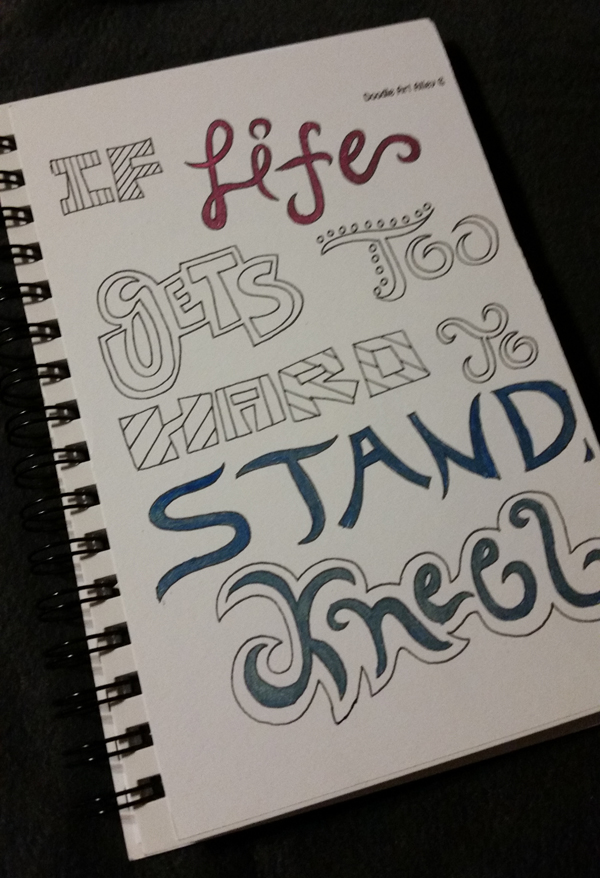 Doodle Art Alley ©
IF Life
GETS TOO
HARD To
STAND,
Kneel